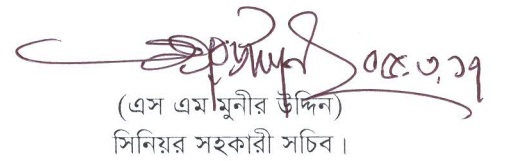 ০৫.৩.১৭
(এস এম মুনীর উদ্দিন)
সিনিয়র সহকারী সচিব।